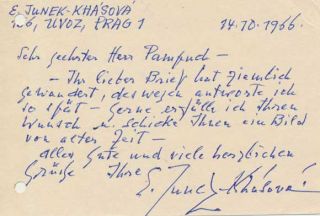 E. JUNEK-KHÁSOVÁ
126, ÚVOZ, PRAG 1 14.10.1966.
Sehr geehrter Herr Pampuch –
– Ihr lieber Brief hat ziemlich
gewandert, deswegen antworte ich
so spät – gerne erfülle ich Ihren
Wunsch u. schicke Ihnen ein Bild
von alter Zeit –
alles Gute und viele herzlichen
Grüße Ihre
E. Junek-Khásová